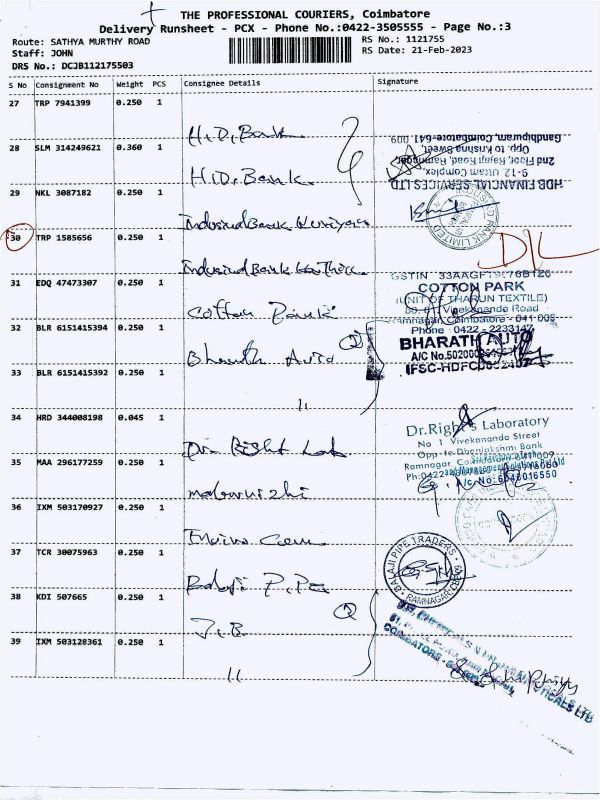 THE PROFESSIONAL COURIERS, Coimbatore
Delivery Runsheet - PCX - Phone No.:0422-3505555 - Page No.:3
Route: SATHYA MURTHY ROAD
RS No.: 1121755
Staff: JOHN
RS Date: 21-Feb-2023
DRS No.: DCJB112175503
S No Consignment No Weight PCS Consignee Details Signature
27 TRP 7941399 0.250 1
H.D. Bank
28 SLM 314249621 0.360 1
H.D. Bank
HDB FINANCIAL SERVICES LTD
9-12 Uttam Complex,
2nd Floor, Rajaji Road, Ramnagar,
Opp. to Krishna Sweet,
Gandhipuram, Coimbatore-641 009
29 NKL 3087182 0.250 1
Indusind Bank
INDUSIND BANK LIMITED
30 TRP 1585656 0.250 1
Indusind Bank
D/L
31 EDQ 47473307 0.250 1
Cotton
COTTON PARK
(UNIT OF THARUN TEXTILE)
Vivekananda Road
Ramnagar, Coimbatore - 641 009
Phone : 0422 - 2233147
32 BLR 6151415394 0.250 1
Bharath Auto
2
BHARATH AUTO
33 BLR 6151415392 0.250 1
"
34 HRD 344008198 0.045 1
Dr. Right Lab
Dr.Right's Laboratory
No 1 Vivekananda Street
Opp to Dhenlakshmi Bank
35 MAA 296177259 0.250 1
36 IXM 503170927 0.250 1
37 TCR 30075963 0.250 1
Balaji Pipe
BALAJI PIPE TRADERS
RAMNAGAR, CBE-9
38 KDI 507665 0.250 1
J.B
2
39 IXM 503128361 0.250 1
"